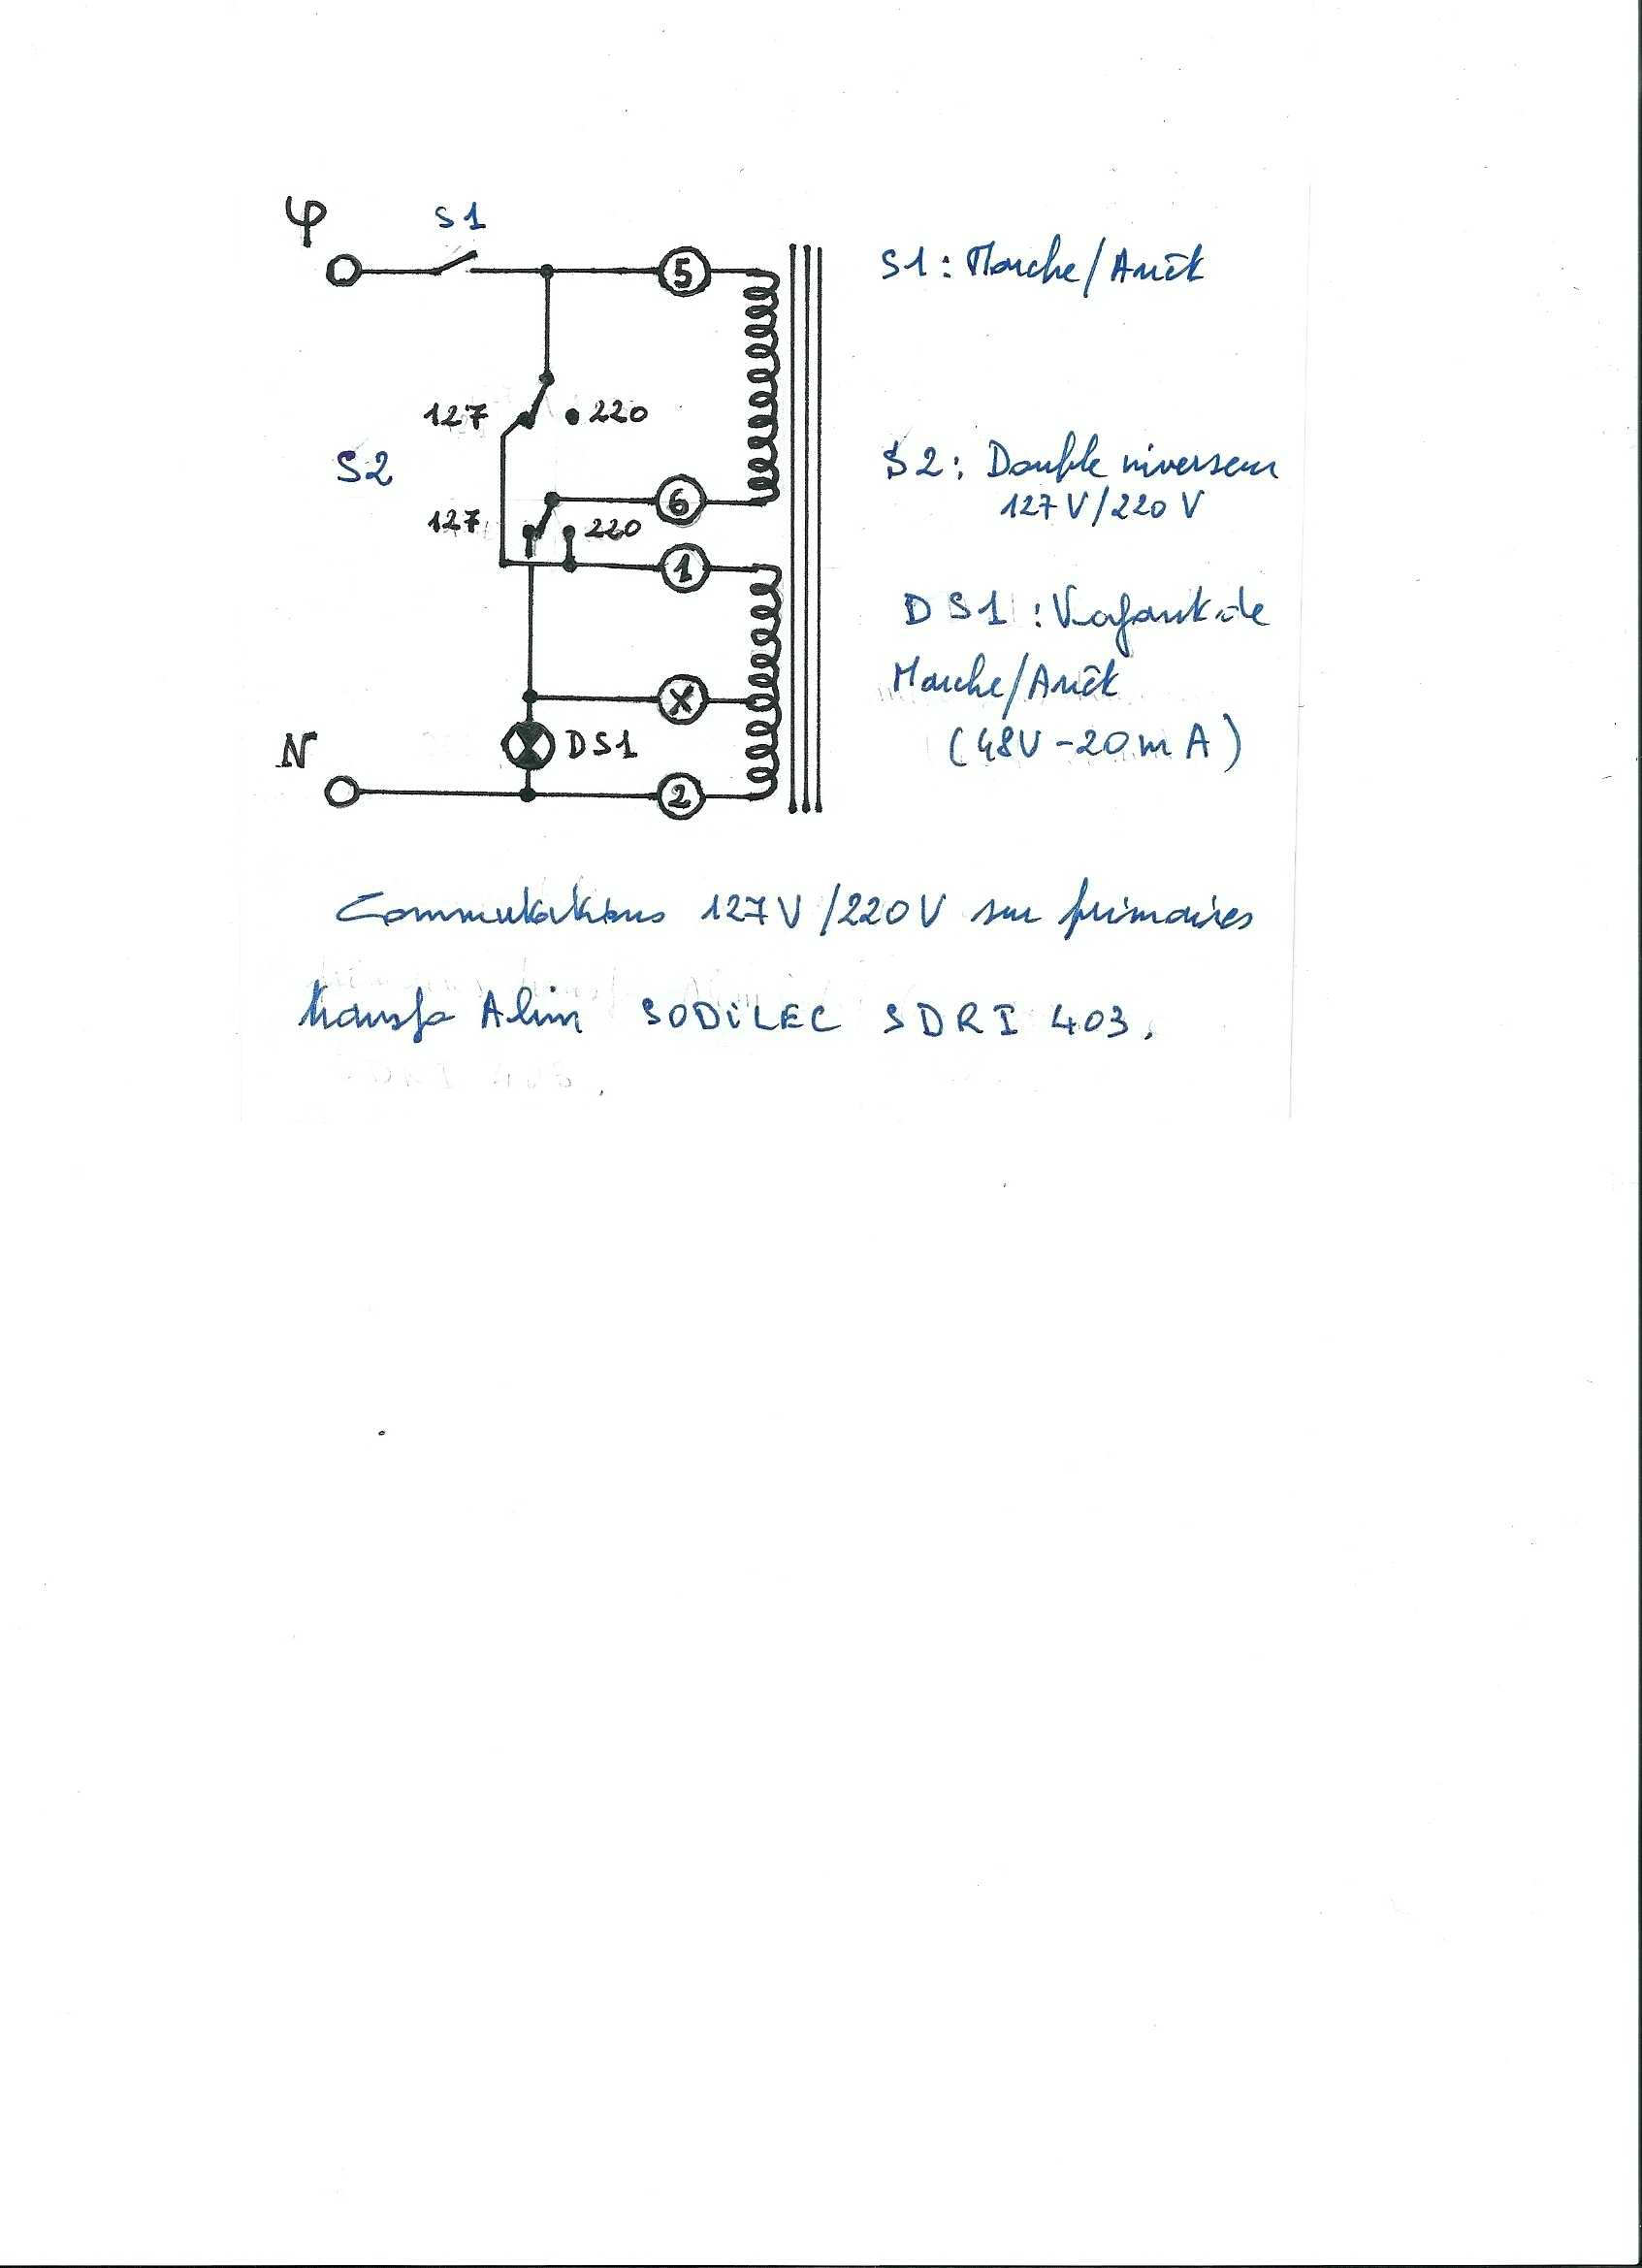 φ
S1
5
127
220
S2
6
127
220
1
X
DS1
N
2
S1: Marche/Arrêt
S2: Double inverseur
127V/220V
DS1: Voyant de
Marche/Arrêt
(48V-20mA)
Commutations 127V/220V sur primaires
transfo Alim SODILEC SDRI 403.